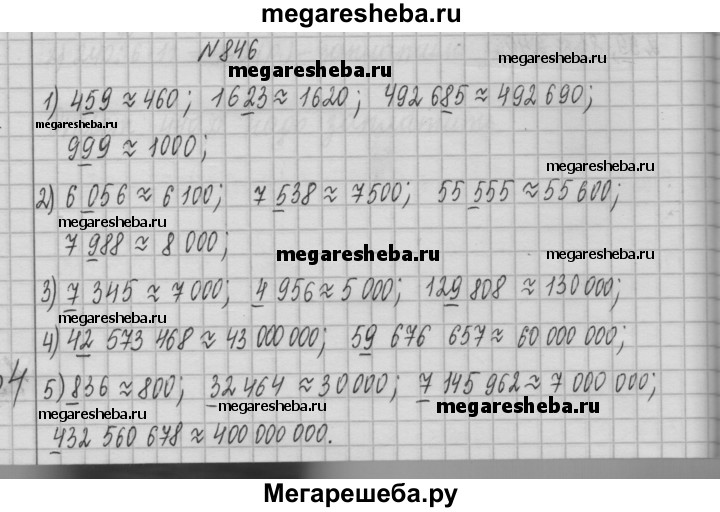 megaresheba.ru
N 846
megaresheba.ru
1) 459 ≈ 460; 1623 ≈ 1620; 492 685 ≈ 492 690;
megaresheba.ru
999 ≈ 1000;
megaresheba.ru
2) 6 056 ≈ 6 100; 7 538 ≈ 7500; 55 555 ≈ 55 600;
megaresheba.ru
7 988 ≈ 8 000;
megaresheba.ru
3) 7 345 ≈ 7 000; 4 956 ≈ 5 000; 129 808 ≈ 130 000;
megaresheba.ru
4) 42 573 468 ≈ 43 000 000; 59 676 657 ≈ 60 000 000;
4
5) 836 ≈ 800; 32 464 ≈ 30 000; 7 145 962 ≈ 7 000 000;
megaresheba.ru megaresheba.ru
432 560 678 ≈ 400 000 000.
Мегарешеба.ру